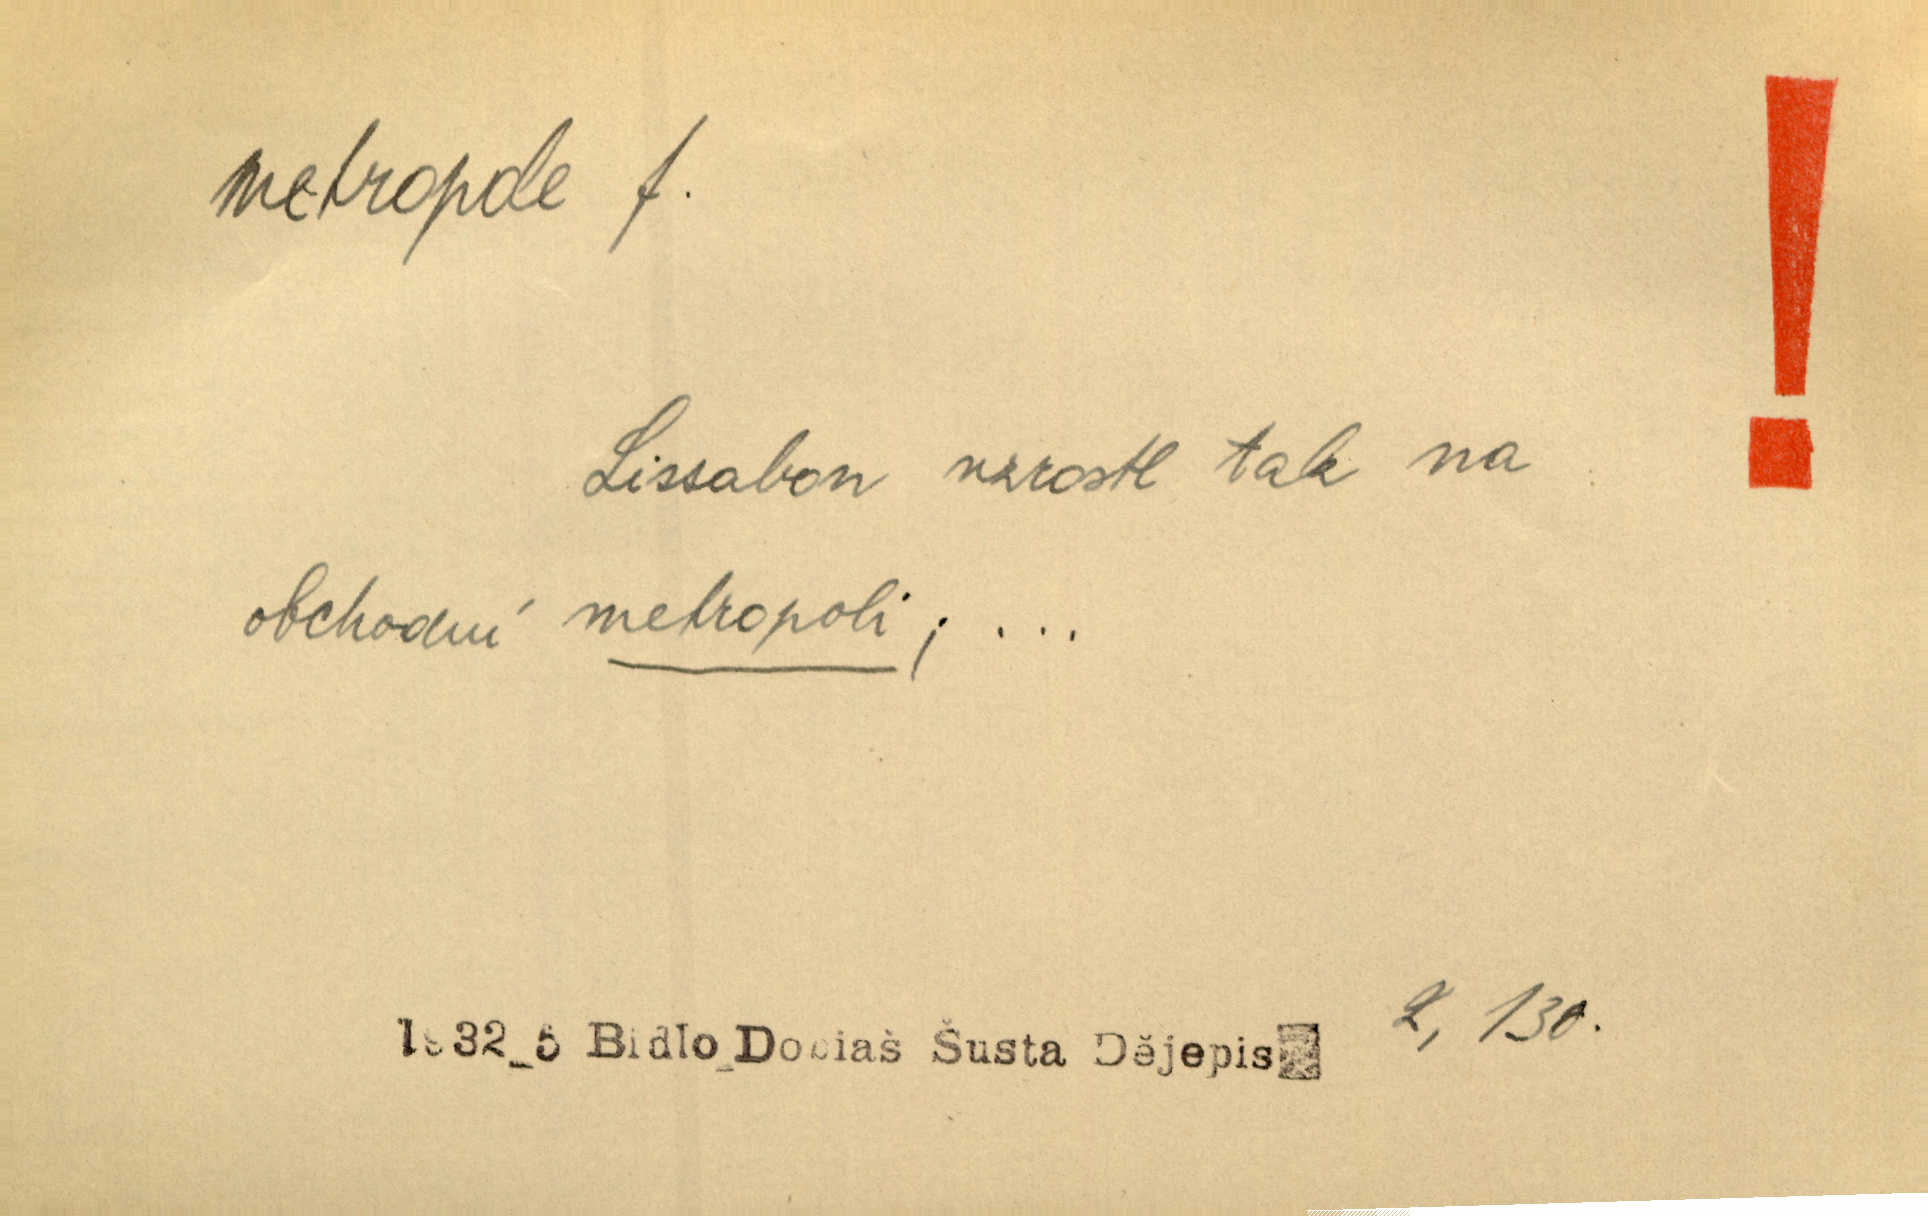 metropole f.
!
Lissabon vzrostl tak na
obchodní metropoli; ...
1932_5 Bidlo_Dobiaš Šusta Dějepis 2, 130.